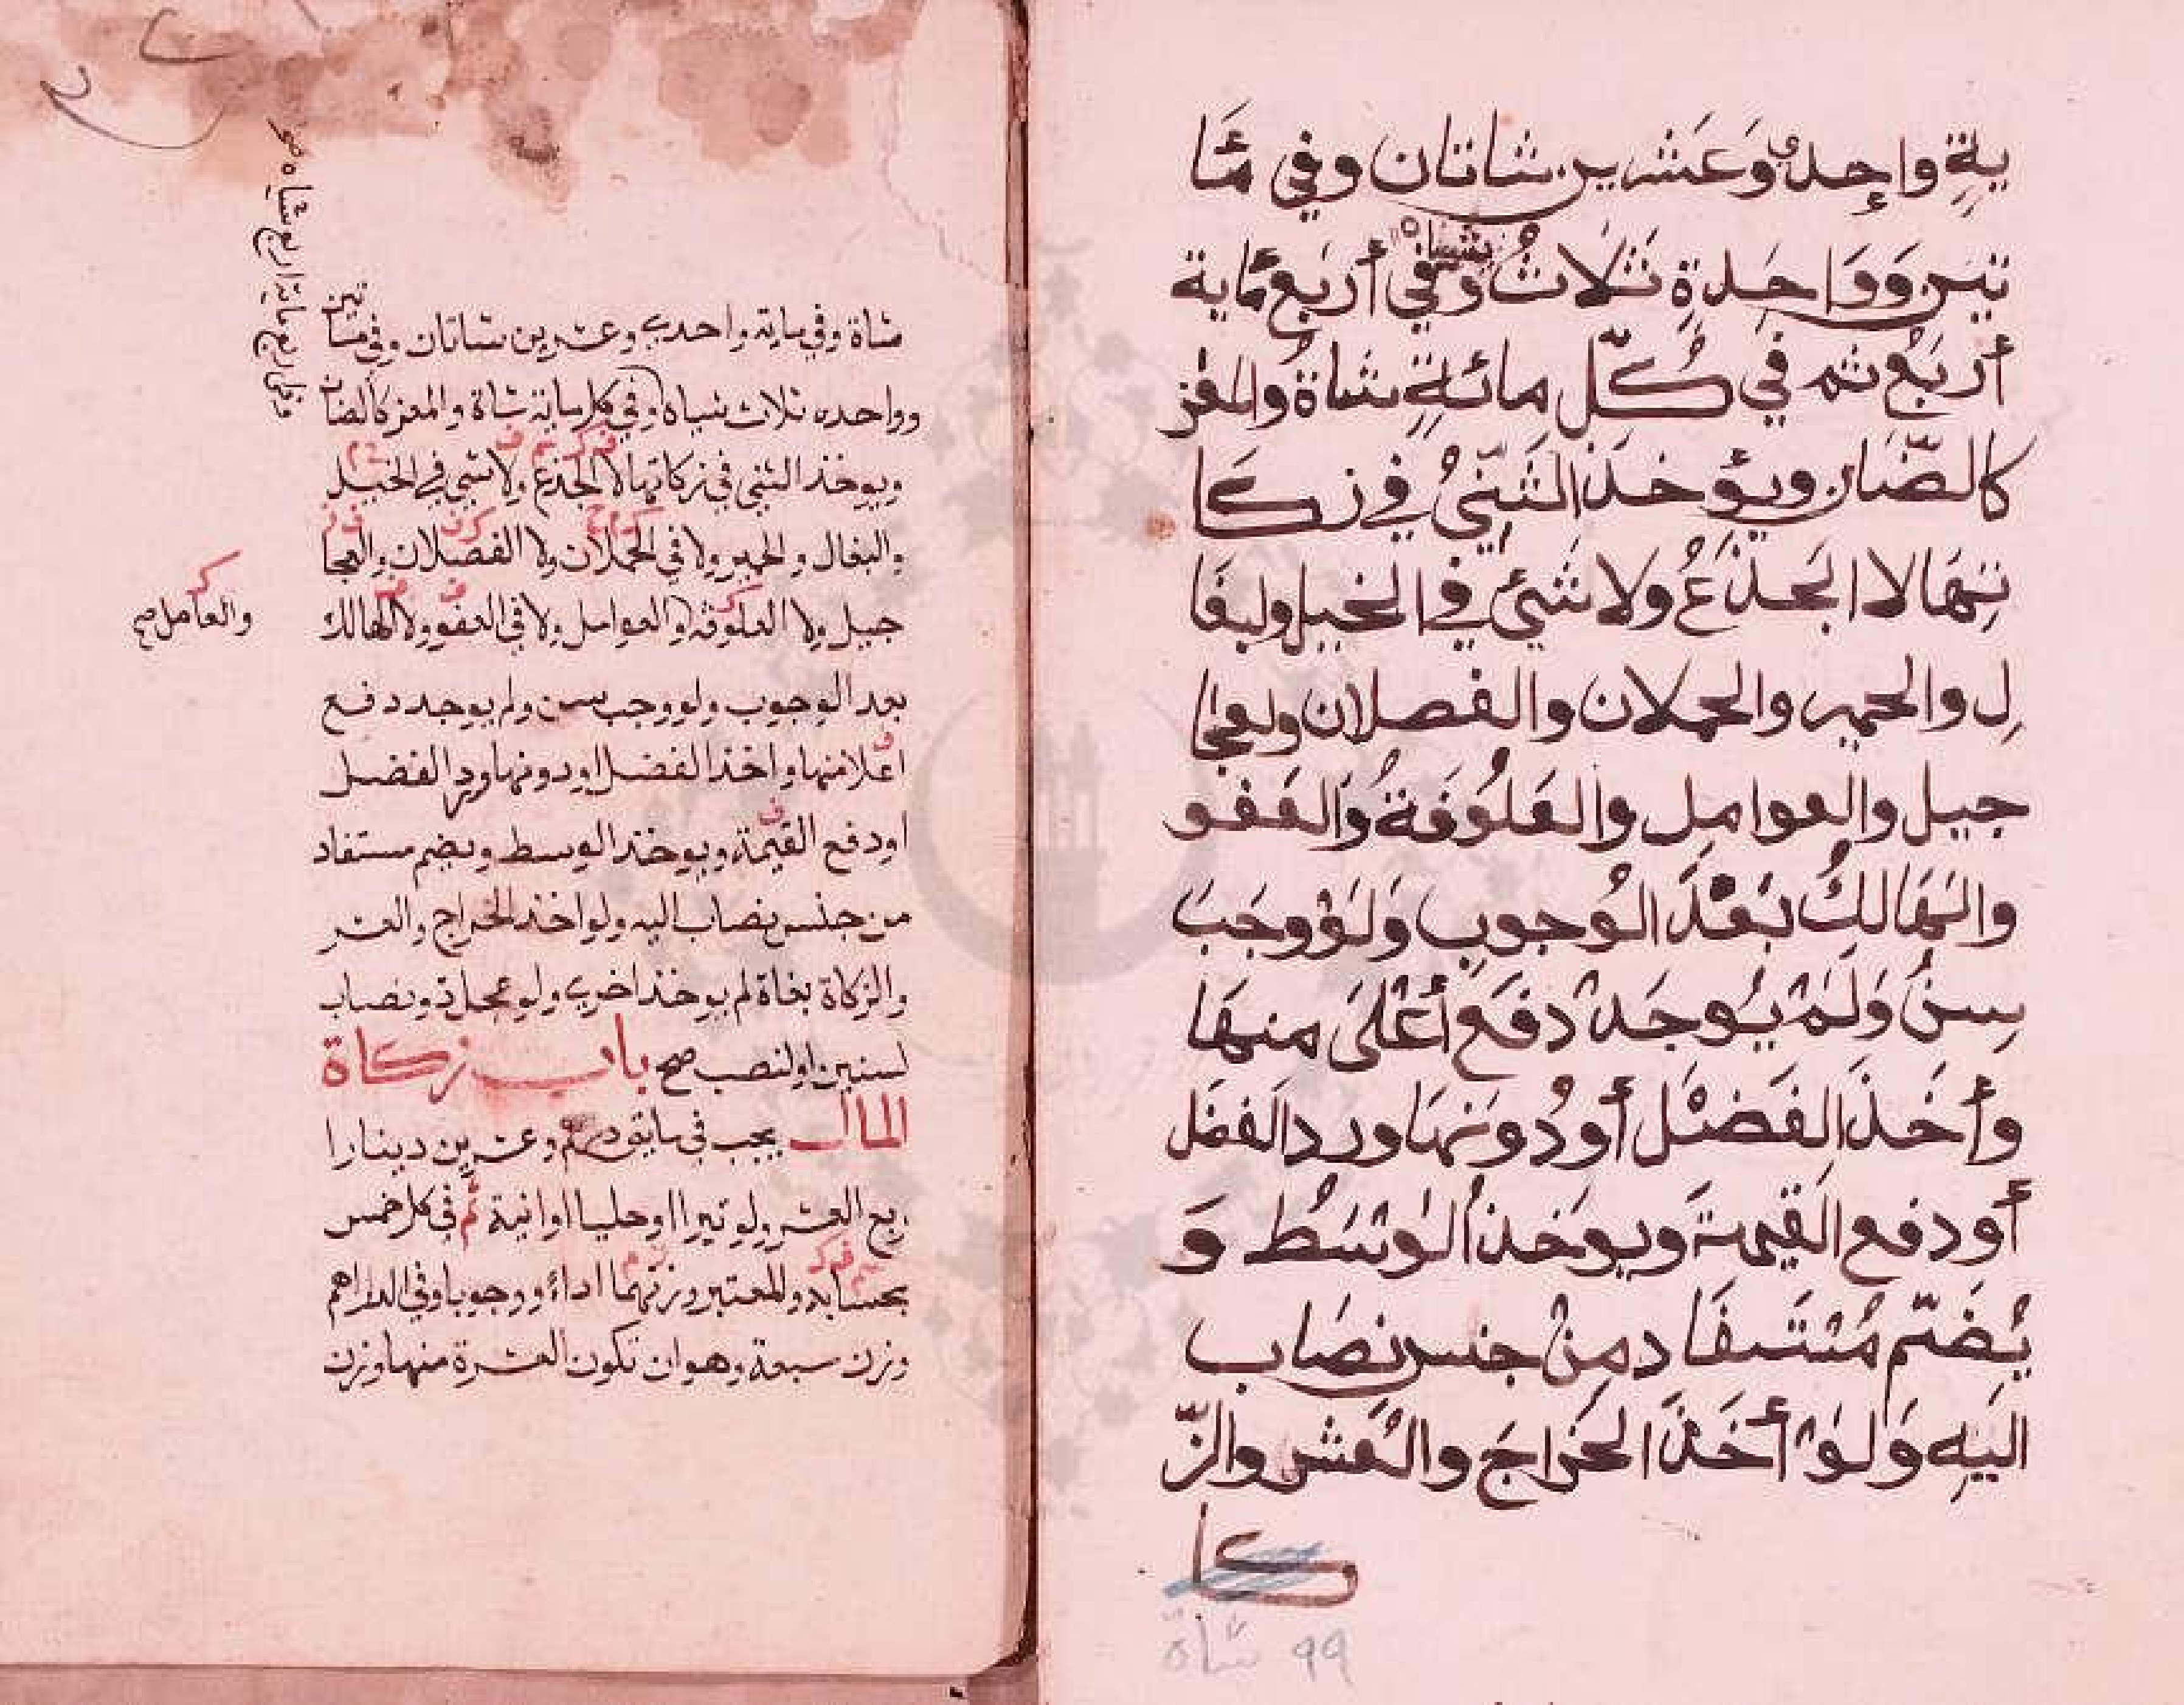 ية واحد وعشرين شاتان وفي مئا
تين وواحدة ثلاث شياه وفي أربع مائة
أربع ثم في كل مائة شاة والمعز
كالضان ويؤخذ الثني في زكا
تها لا الجذع ولا شيء في الخيل ولبغا
ل والحمير والحملان والفصلان ولعجا
جيل والعوامل والعلوفة والعفو
والهالك بعد الوجوب ولو وجب
سن ولم يوجد دفع أعلى منها
وأخذ الفضل أو دونها ورد الفضل
أو دفع القيمة ويوخذ الوسط و
يضم مستفاد من جنس نصاب
اليه ولو أخذ الخراج والعشر والز
كا
٩٩ شاة
شاة وفي ماية واحدي وعشرين شاتان وفي مئاتين
وواحده ثلاث شياه وفي كل ماية شاة والمعز كالضان
ويوخذ الثني في زكاتها لا الجذع ولا شي في الخيل
والبغال والحمير ولا في الحملان ولا الفصلان والعجا
جيل ولا العلوفة والعوامل ولا في العفو ولا الهالك
بعد الوجوب ولو وجب سن ولم يوجد دفع
اعلا منها واخذ الفضل او دونها ورد الفضل
او دفع القيمة ويوخذ الوسط ويضم مستفاد
من جنس نصاب اليه ولو اخذ الخراج والعشر
والزكاة بغاة لم يوخذ اخري ولو عجل ذو نصاب
لسنين او لنصب صح باب زكاة
المال يجب في مايتي درهم وعشرين دينارا
ربع العشر ولو تبرا او حليا او انية ثم في كل خمس
بحسابه والمعتبر وزنهما اداء ووجوبا وفي الدراهم
وزن سبعة وهو ان تكون العشرة منها وزن
وفي اربع مائة اربع شياه
والعامل صح